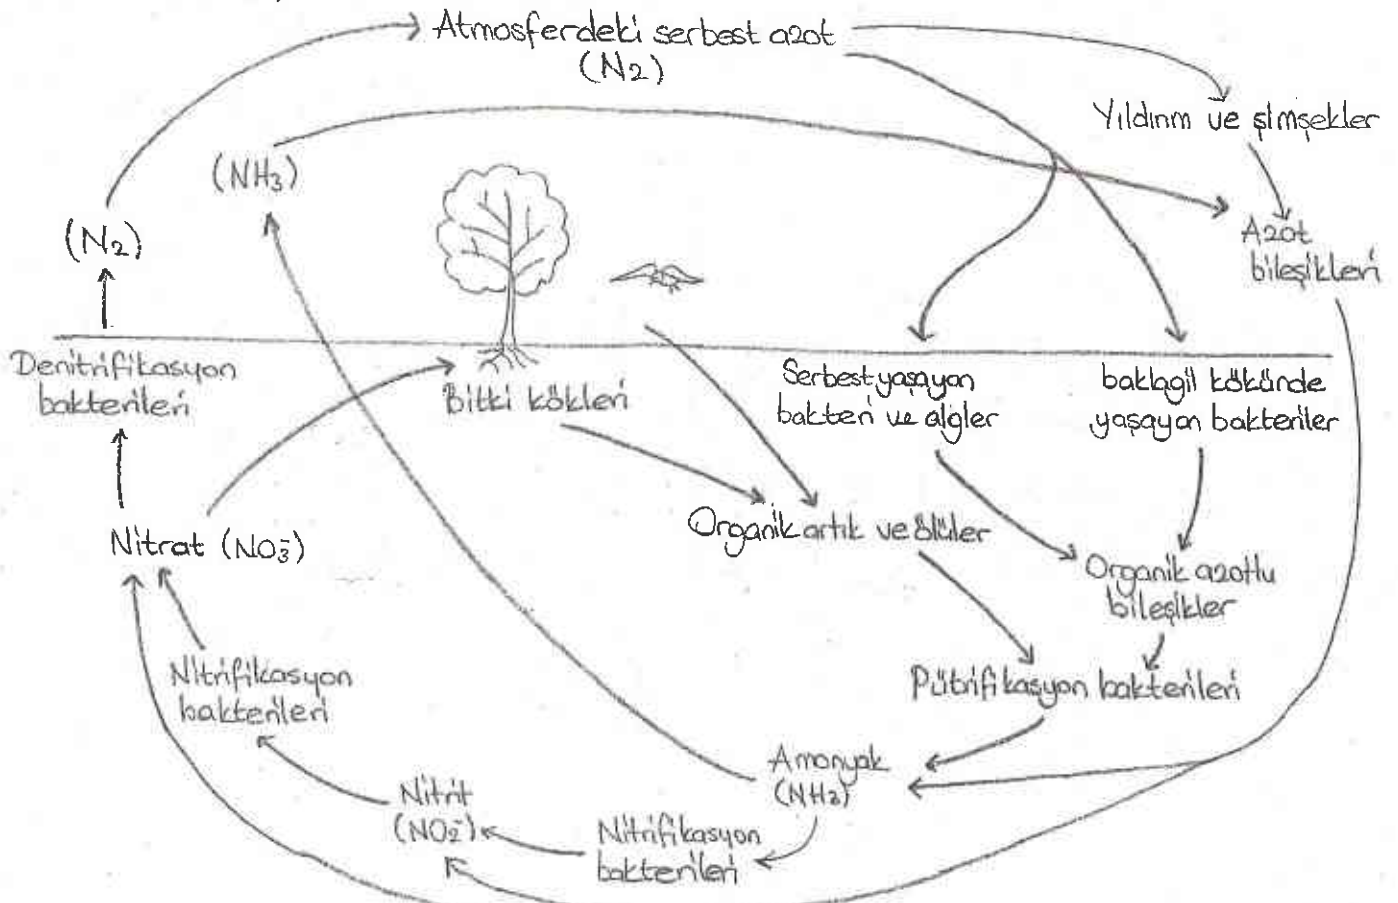 Atmosferdeki serbest azot
(N₂)
Yıldırım ve şimşekler
(NH₃)
(N₂)
Azot
bileşikleri
Denitrifikasyon
bakterileri
Bitki kökleri
Serbest yaşayan
bakteri ve algler
baklagil kökünde
yaşayan bakteriler
Organik artık ve ölüler
Nitrat (NO₃⁻)
Organik azotlu
bileşikler
Nitrifikasyon
bakterileri
Pütrifikasyon bakterileri
Amonyak
(NH₃)
Nitrit
(NO₂⁻)
Nitrifikasyon
bakterileri